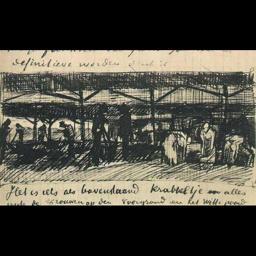 definitieve worden
Het is iets als bovenstaand krabbeltje en alles
de vrouwen op den voorgrond en het witte paard